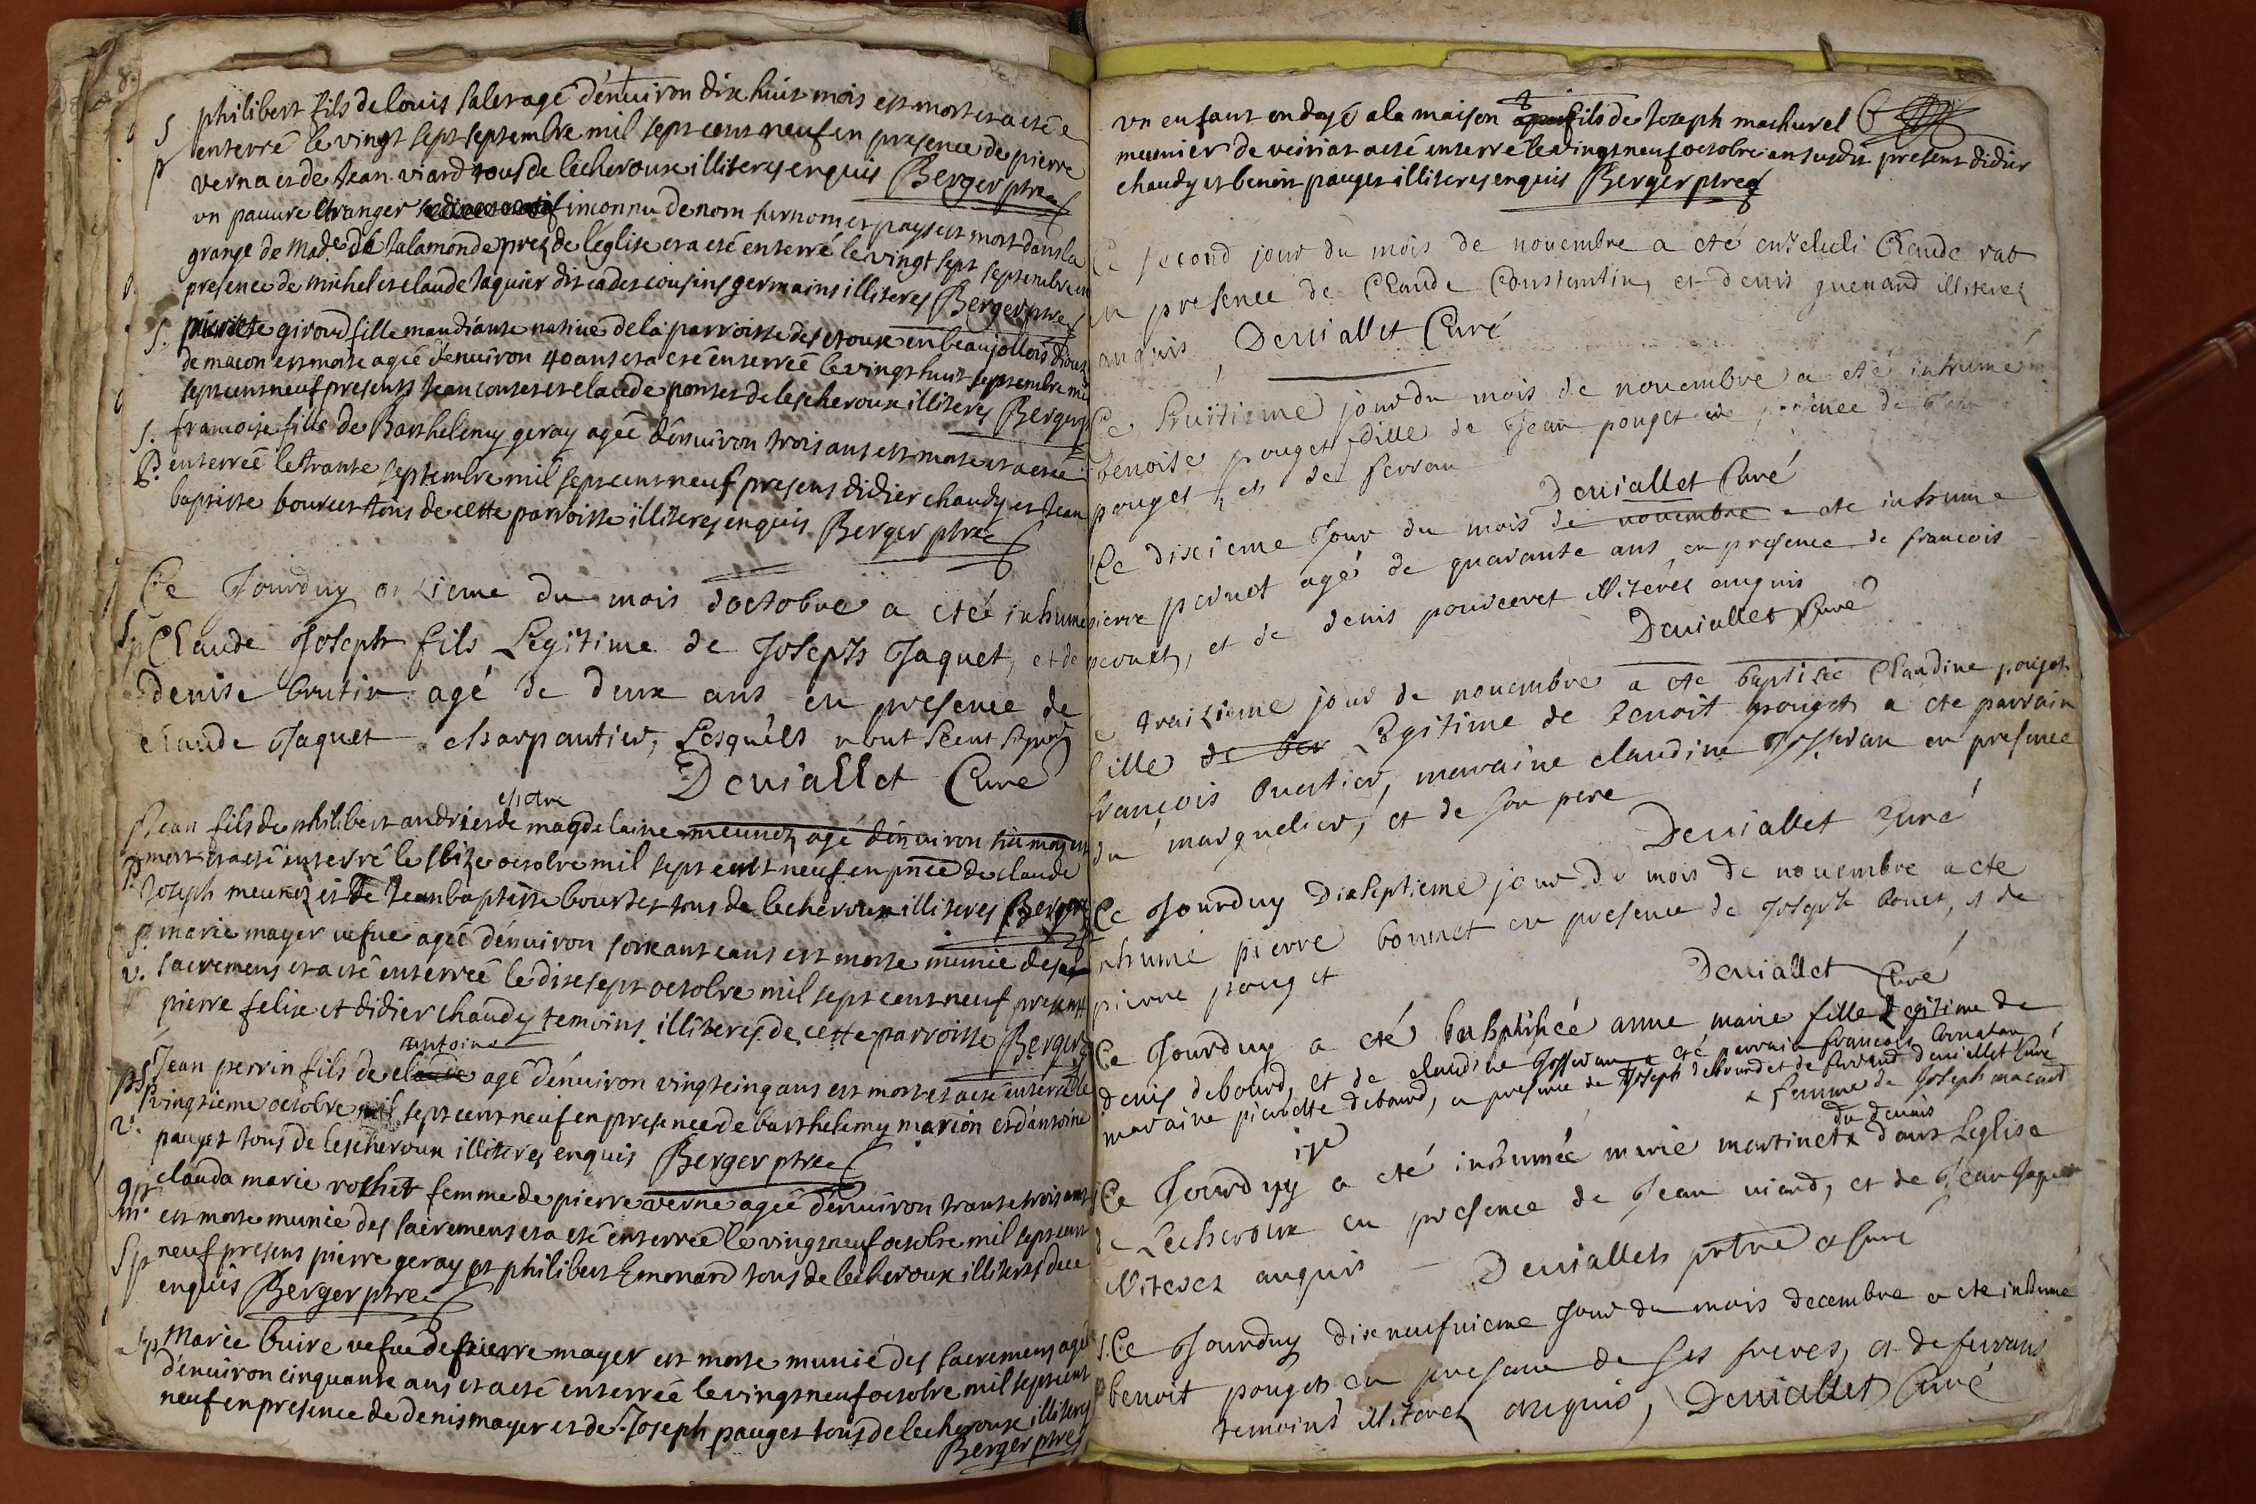 philibert fils de louis salet agé d'enuiron dix huit mois est mort et a eté
enterré le vingt sept septembre mil sept cent neuf en presence de pierre
verna et de Jean viard tous de lecheroux illiteres enquis Berger ptre
un pauure etranger inconnu de nom surnom et pays est mort dans la
grange de Made. de talamonde prez de l'église et a eté enterré le vingt sept septembre en
presence de michel et claude Jaquier dit cadet cousins germains illiteres Berger ptre
pierrette giroud fille mandiante natiue de la parroisse des en beaujollois
de macon est morte agée d'enuiron 40 ans et a eté enterreé le vingt huit septembre mil
sept cent neuf presents Jean et claude ponset de lescheroux illiteres Berger p
francoise fille de Barthelemy geray agée d'enuiron trois ans est morte et a eté
enterreé le trante septembre mil sept cent neuf presens didier chaudy et Jean
baptiste bourcet tous de cette parroisse illiteres enquis Berger ptre
Ce Jourduy onzieme du mois doctobre a eté inhumé
Claude Joseph fils Legitime de Joseph Jaquet, et de
denise brutin agé de deux ans en presence de
claude Jaquet charpantier, Lesquels nont sceut signer
Deuiallet Curé
Jean fils de philibert andrier et de magdelaine meunez agé d'enuiron six moys est
mort et a eté enterré le seize octobre mil sept cent neuf en pnce de claude
Joseph meunez et de Jean baptiste bourset tous de lecheroux illiteres Berger
marie mayer uefue agée d'enuiron soixante ans est morte munie des
sacremens et a eté enterreé le dixesept octobre mil sept cent neuf presents
pierre felix et didier chaudy temoins illiteres de cette parroisse Berger
antoine
Jean perrin fils de claude agé d'enuiron vingt cinq ans est mort et a eté enterré le
vingtieme octobre mil sept cent neuf en presence de barthelemy marion et d'antoine
pauget tous de lescheroux illiteres enquis Berger ptre
clauda marie rochet femme de pierre verne agée d'enuiron trante trois ans
est morte munie des sacremens et a eté enterreé le vingt neuf octobre mil sept cent
neuf presens pierre geray et philibert Emonard tous de lecheroux illiteres
enquis Berger ptre
Marie buire uefue de pierre mayer est morte munie des sacremens agée
d'enuiron cinquante ans et a eté enterreé le vingt neuf octobre mil sept cent
neuf en presence de denis mayer et de Joseph pauget tous de lecheroux illiteres
Berger ptre
un enfant ondoyé a la maison fils de Joseph machurel
meunier de veiriat a eté enterré le vingt neuf octobre an susdit present didier
chaudy et benoit pauget illiteres enquis Berger ptre
Ce second jour du mois de nouembre a eté enzeueli Claude rat
en presence de Claude Constantin, et denis guenard illiterez
anquis Deuiallet Curé
Ce huitieme jour du mois de nouembre a eté inhumé
benoite pouget fille de Jean pouget en presence de Jean
pouget, et de ferran
Deuiallet Curé
Ce dixieme Jour du mois de nouembre a eté inhumé
pierre peruet agé de quarante ans en presence de francois
peruet, et de denis pourceret illiterez anquis
Deuiallet Curé
Ce traizieme jour de nouembre a eté baptisée Claudine pouget
fille Legitime de benoit pouget a eté parrain
françois ouertier, maraine claudine Josseran en presence
du marguelier, et de son pere
Deuiallet Curé
Ce Jourduy dixseptieme jour du mois de nouembre a eté
inhumé pierre bonnet en presence de Joseph bonet, et de
pierre pouget
Deuiallet Curé
Ce Jourduy a eté babptiséé anne marie fille Legitime de
denis debourd, et de claudine Josseran a eté parrain francois
maraine pierrette debourd, en presence de Joseph debourd et de ferrand deuiallet Curé
femme de Joseph
Ce Jourduy a eté inhumée marie martinet dans Leglise
de Lecheroux en presence de Jean uiard, et de Jean Jaquet
illiterez anquis Deuiallet prêtre et Curé
Ce Jourduy dixneufuieme Jour du mois decembre a eté inhumé
benoit pouget en presance de ses freres, et de ferrand
temoins illiterez anequis, Deuiallet Curé